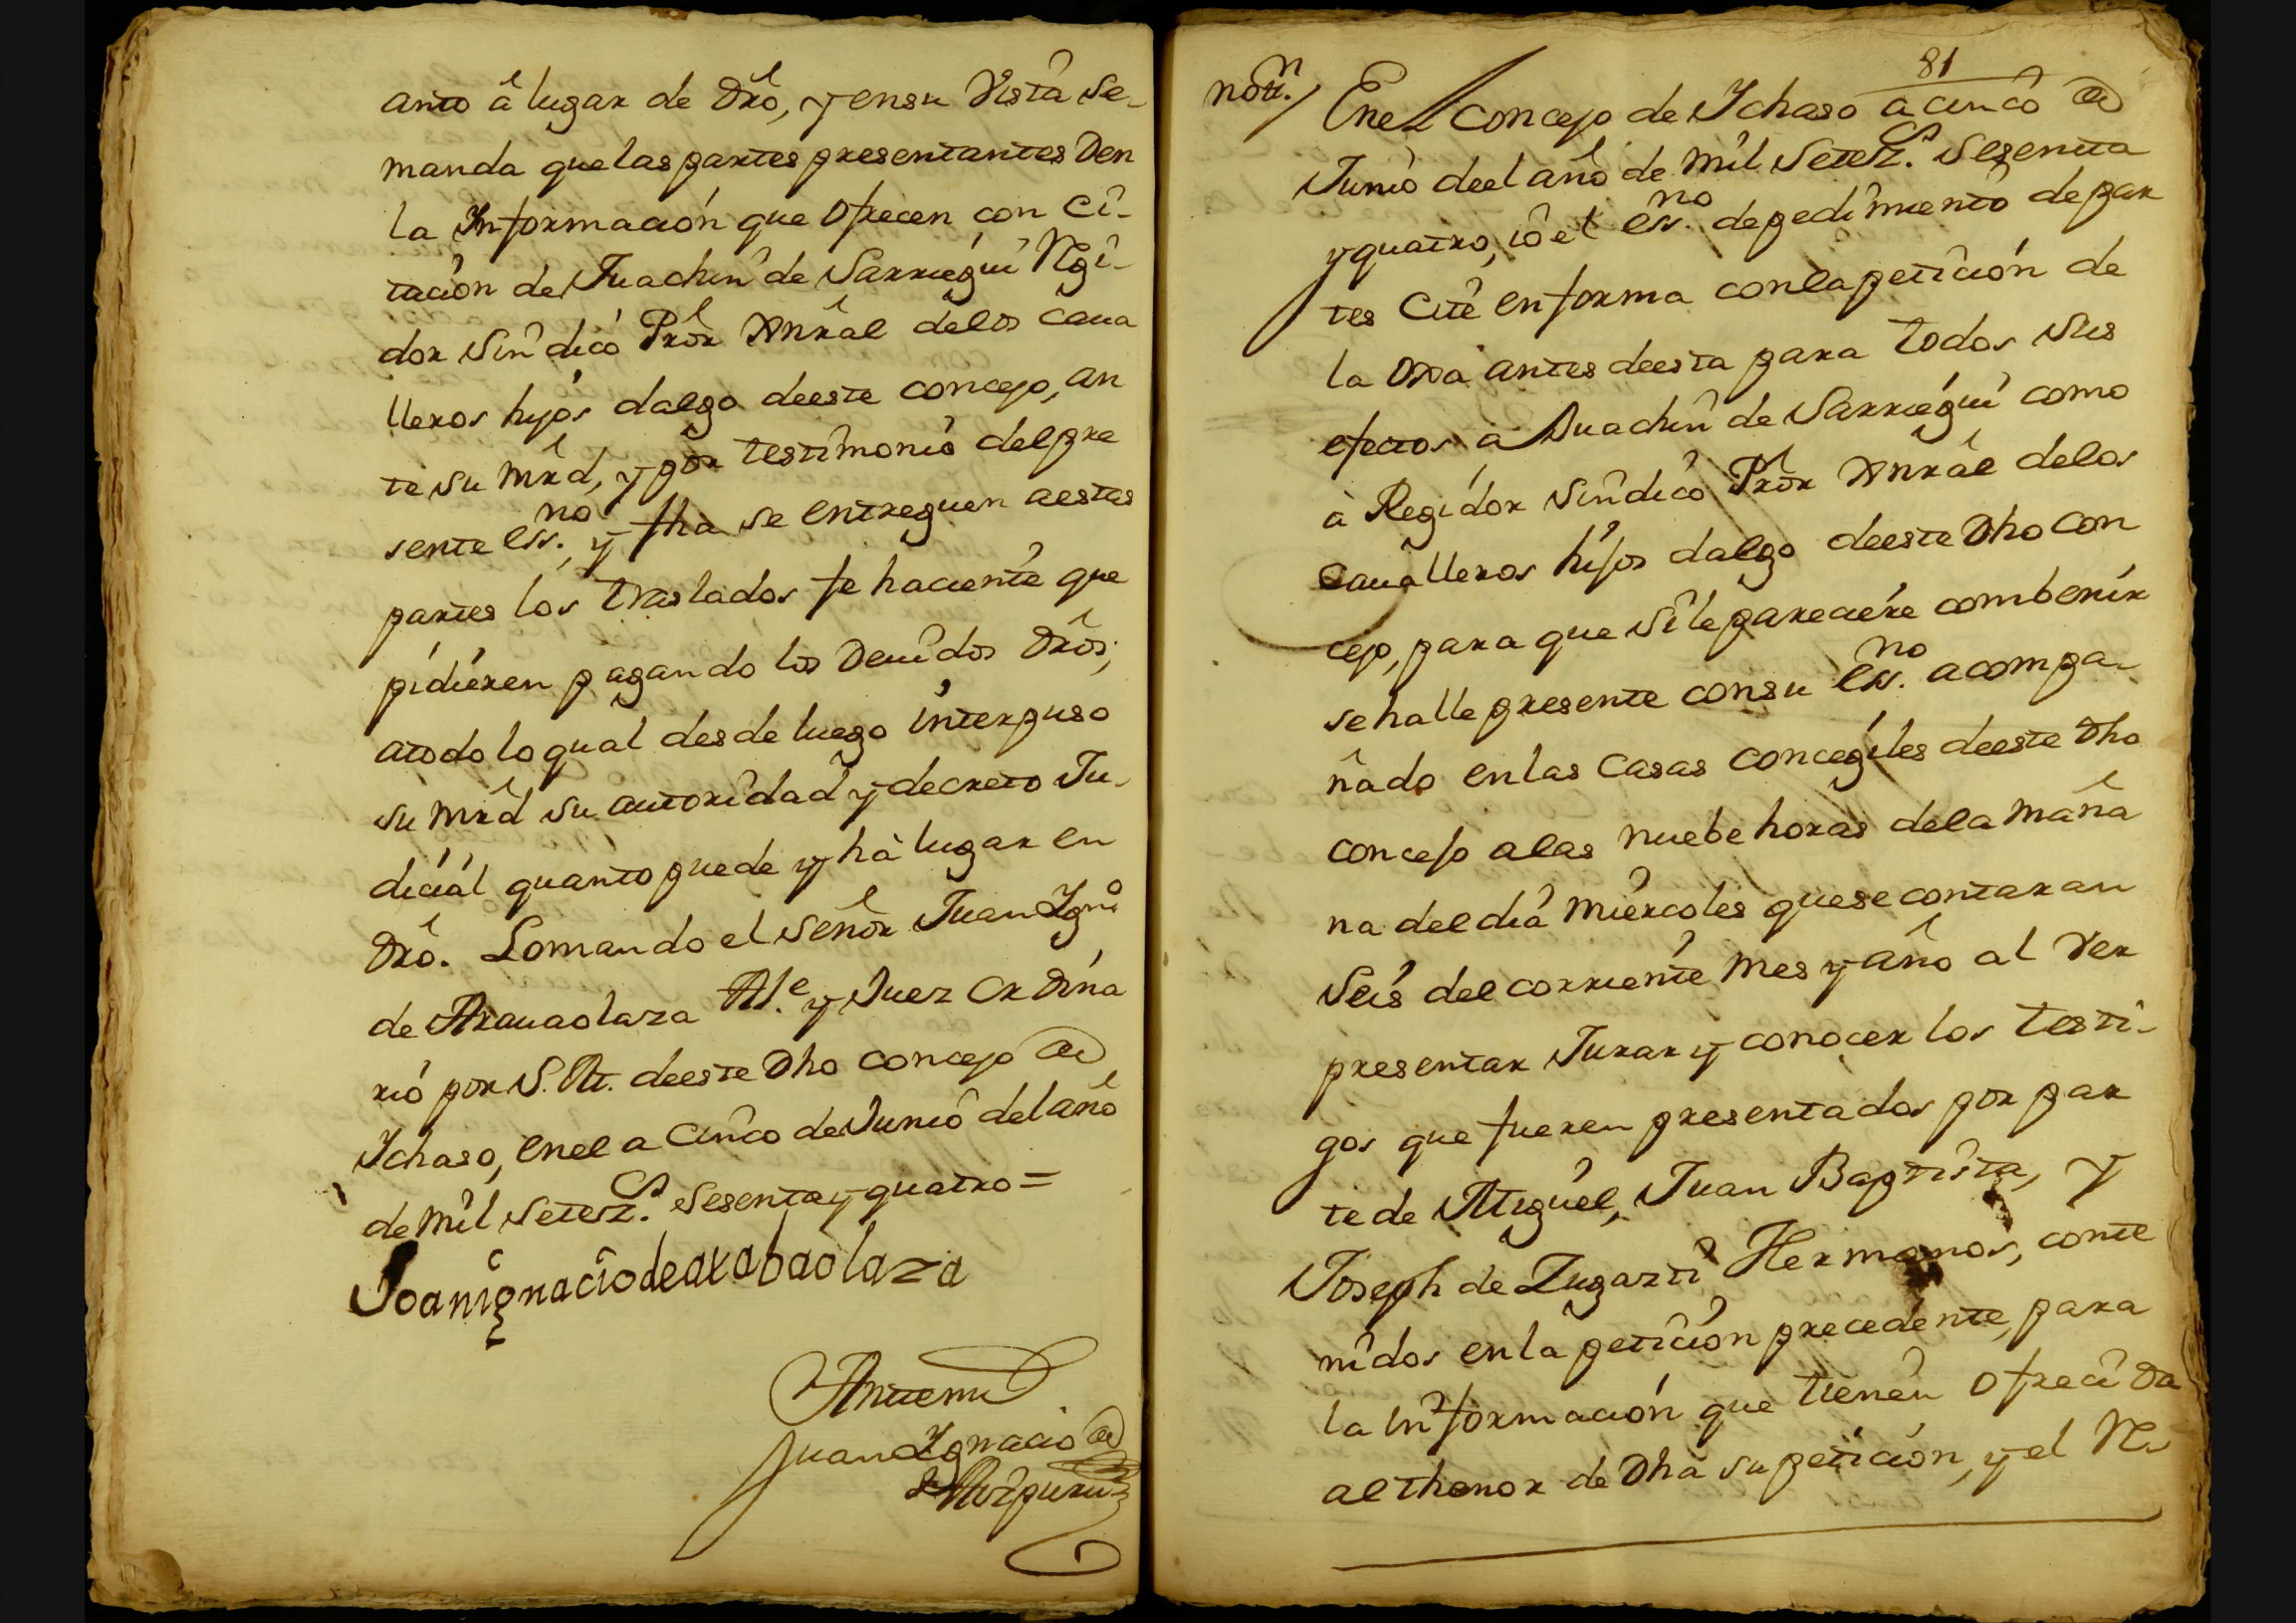 anto â lugar de Dr̃o, y ensu Vista se-
manda quelas partes presentantes Den
la Informaciòn que Ofrecen con Ci-
tación de Juachin de Sarriegui Rgi-
dor Sindico Pr̃or Gnr̃al delos Caua
lleros hijos dalgo deeste concejo, an
te su mr̃d, y por testimonio delpre
sente ess.no y fha se entreguen aestas
partes los traslados fe haciente que
pidieren pagando los Deuidos Dr̃os;
atodo loqual desde luego interpuso
su mr̃d su autoridad y decreto Ju-
diciál quanto puede y hà lugar en
Dr̃o. Lo mando el Señor Juan Igno
de Arauaolaza Al.e y Juez Ordina
rio por S. M. deeste Dho concejo de
Ichaso, enel a Cinco de Junio del año
de mil Setez.s Sesenta y quatro =
Joanignaciodearabaolaza
Antemi
Juan Ignacio de
de Aizpuru
81
nott.n/ Enel Concejo de Ichaso a cinco de
Junio deel año de mil Setez.s Sesenta
y quatro, io el ess.no depedimiento de par
tes Cité enforma conla petición de
la ôxa antes deesta para todos sus
efectos a Juachin de Sarriegui como
à Regidor Sindico Pr̃or Gnr̃al delos
Caualleros hijos dalgo deeste Dho con
cejo, para que sile pareciere combenir
sehalle presente consu ess.no acompa-
ñado enlas Casas concegiles deeste Dho
concejo alas nuebe horas dela maña
na deel dia miercoles quese contaran
Seis del corriente mes y año al Ver
presentar Jurar y conocer los testi-
gos que fueren presentados por par
te de Miguel, Juan Baptista, y
Joseph de Zugazti Hermanos, conte
nidos enla petición precedente, para
la Información que tienen Ofrecida
althenor de Dha su petición, y el Re